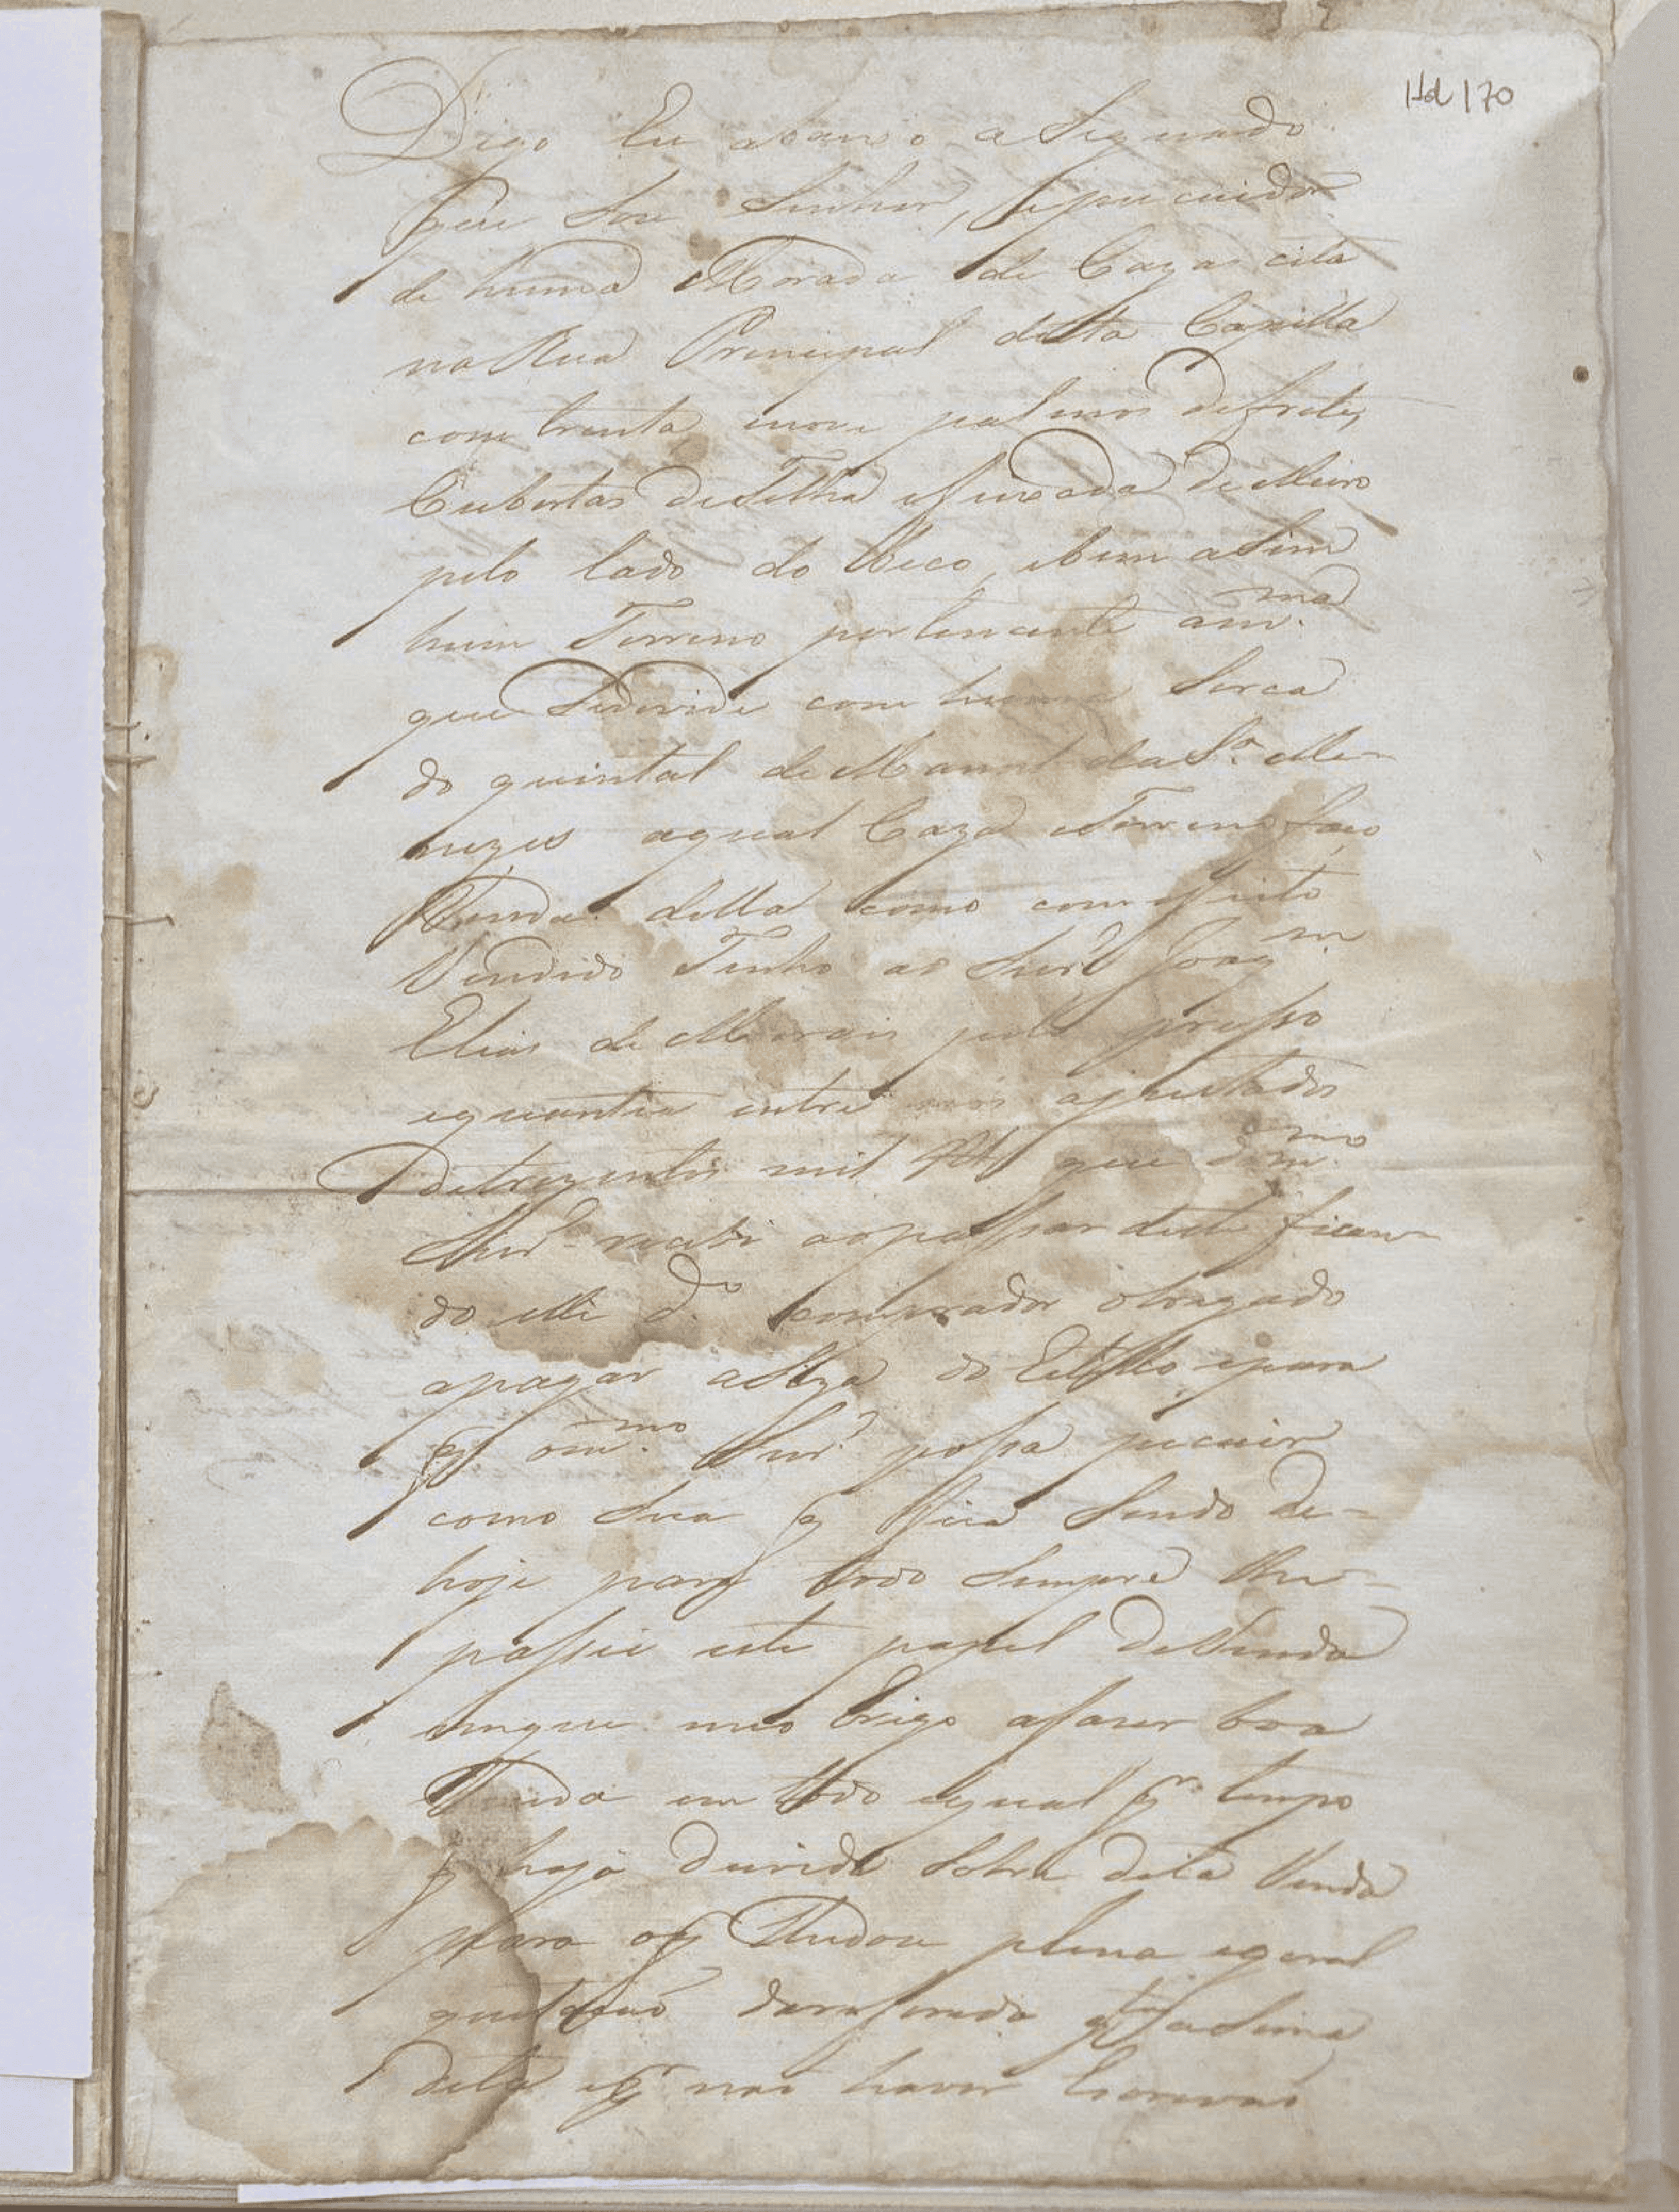 Hd 170
Digo Eu abaixo asignado
que Sou Senhor, e pucuidor
de huma Morada de Cazas cita
na Rua Principal desta Capilla
com trenta e nove palmos de frete,
Cubertas de Telha e fixada de Muro
pelo lado do Beco, e bem asim
hum Terreno pertencente am.ma
que Sedivide com huma Serca
do quintal de Manoel da S.a Me-
nezes aqual Caza e Terreno faço
Venda della como com efeito
Vendido Tenho ao Snr. Joaq.m
Elias de Morais pelo presso
e quantia entre nós ajustados
detrezentos mil Rs que dom.mo
Snr. recebi ao passar deste fican-
do elle d.o comprador obrigado
apagar a Siza do Estillo epara
q om.mo Snr. possa pucuir
como Sua q fica Sendo de-
hoje para todo Sempre lhe-
passei este papel de Venda
emque meo brigo afazer boa
Venda em todo equal q.r tempo
q haja duvida Sobre dita Venda
para oq lhe dou plena egeral
quitaçaõ da referida q.tia asima
dita e q.r naõ haver Escrivaõ